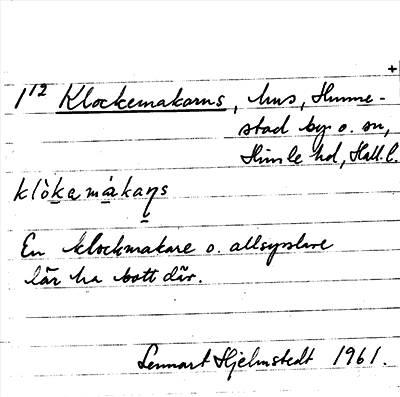 +
1¹² Klockemakarns, hus, Hunne-
stad by o. sn,
Himle hd, Hall. l.
klòkemákaɳs
En klockmakare o. allsysslare
lär ha bott där.
Lennart Hjelmstedt 1961.